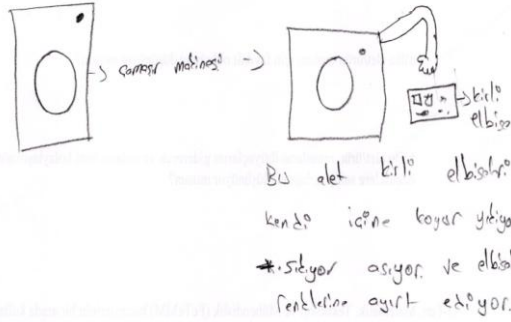 çamaşır makinası
kirli
elbise
Bu alet kirli elbiseleri
kendi içine koyar yıkıyor
sıkıyor asıyor. ve elbise
renklerine ayırt ediyor.